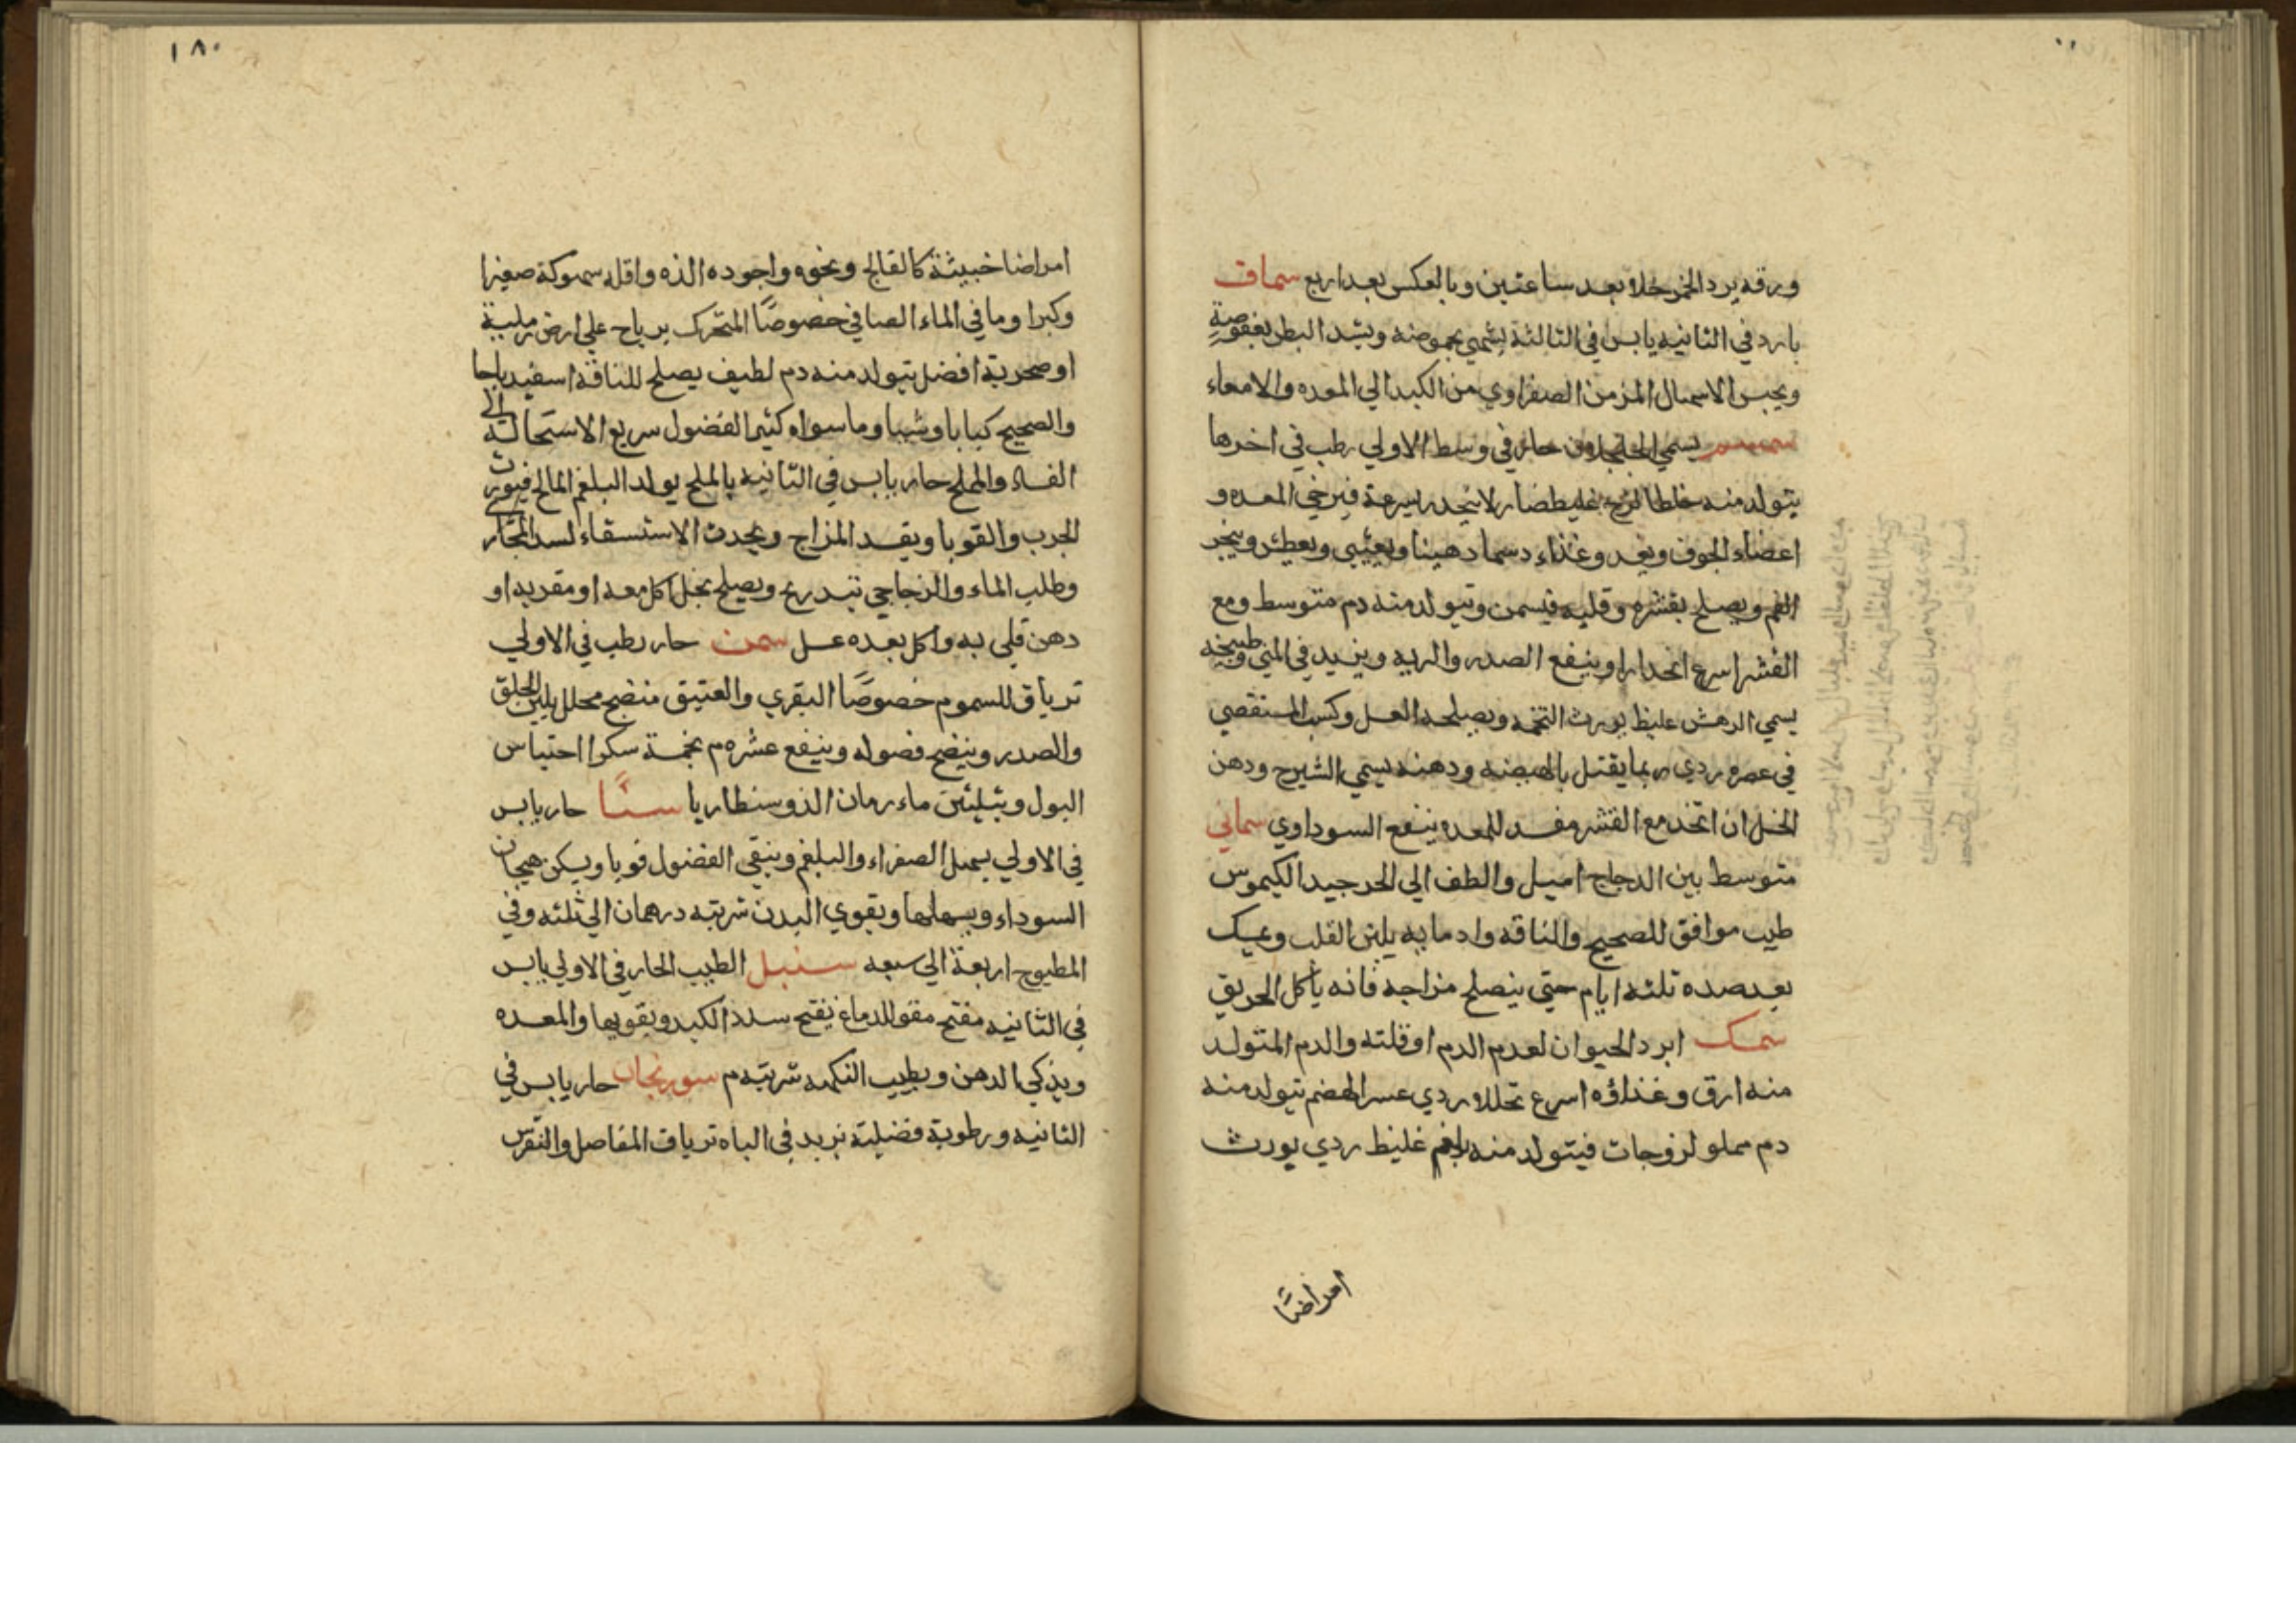 ورقه يرد الخمر خلا بعد ساعتين وبالعكس بعد اربع سماق
بارد في الثانيه يابس في الثالثة يشهي بحموضته ويشد البطن بعفوصة
ويحبس الاسهال المزمن الصفراوي من الكبد الي المعده والامعاء
سمسم يسمي الجلجلان حار في وسط الاولي رطب في اخرها
يتولد منه خلطا لزج غليظ ضار لا ينحدر بسرعة فيرخي المعده و
اعضاء الجوف ويغدو غذاء دسما دهينا ويغثي ويعطش ويبخر
الفم ويصلح بقشره وقليه فيسمن ويتولد منه دم متوسط ومع
القشر اسرع انحدارا وينفع الصدر والريه ويزيد في المني وطبيخه
يسمي الرهش غليظ يورث التخمه ويصلحه العسل وكسب المستقصي
في عصره ردي ربما يقتل بالهيضه ودهنه يسمي الشيرج ودهن
الخل ان اتخذ مع القشر مفسد للمعده ينفع السوداوي سماني
متوسط بين الدجاج اميل والطف الي الحر جيد الكيموس
طيب موافق للصحيح والناقه وادمانه يلين القلب ويمسك
بعد صده ثلثه ايام حتي ينصلح مزاجه فانه يأكل الحريق
سمك ابرد الحيوان لعدم الدم او قلته والدم المتولد
منه ارق وغذاؤه اسرع تحللا ردي عسر الهضم يتولد منه
دم مملو لزوجات فيتولد منه بلغم غليظ ردي يورث
امراضًا
١٨٠
امراضا خبيثة كالفالج ونحوه واجوده الذه واقله سهوكة صغيرا
وكبرا وما في الماء الصافي خصوصًا المتحرك برياح علي ارض رملية
او صخرية افضل يتولد منه دم لطيف يصلح للناقه اسفيدباجا
والصحيح كبابا وشيا وما سواه كثير الفضول سريع الاستحالة الي
الفساد والمملح حار يابس في الثانيه بالملح يولد البلغم المالح فيورث
الجرب والقوبا ويفسد المزاج ويحدث الاستسقاء لسد المجار
وطلب الماء والزجاجي تبدريج ويصلح بخل اكل معه او مقر به او
دهن قلي به واكل بعده عسل سمن حار رطب في الاولي
ترياق للسموم خصوصًا البقري والعتيق منضج محلل يلين الحلق
والصدر وينضج فضوله وينفع عشره م بخمسة سكرا احتباس
البول وبثلثين ماء رمان الذوسنطاريا سنًا حار يابس
في الاولي يسهل الصفراء والبلغم وينقي الفضول قويا ويسكن هيجان
السوداء ويسهلها ويقوي البدن شربته درهمان الي ثلثه وفي
المطبوح اربعة الي سبعه سنبل الطيب الحار في الاولي يابس
في الثانيه مفتح مقو للدماغ يفتح سدد الكبد ويقويها والمعده
ويذكي الدهن ويطيب النكهه شربته م سورنجان حار يابس في
الثانيه ورطوبة فضلية يزيد في الباه ترياق المفاصل والنقرس